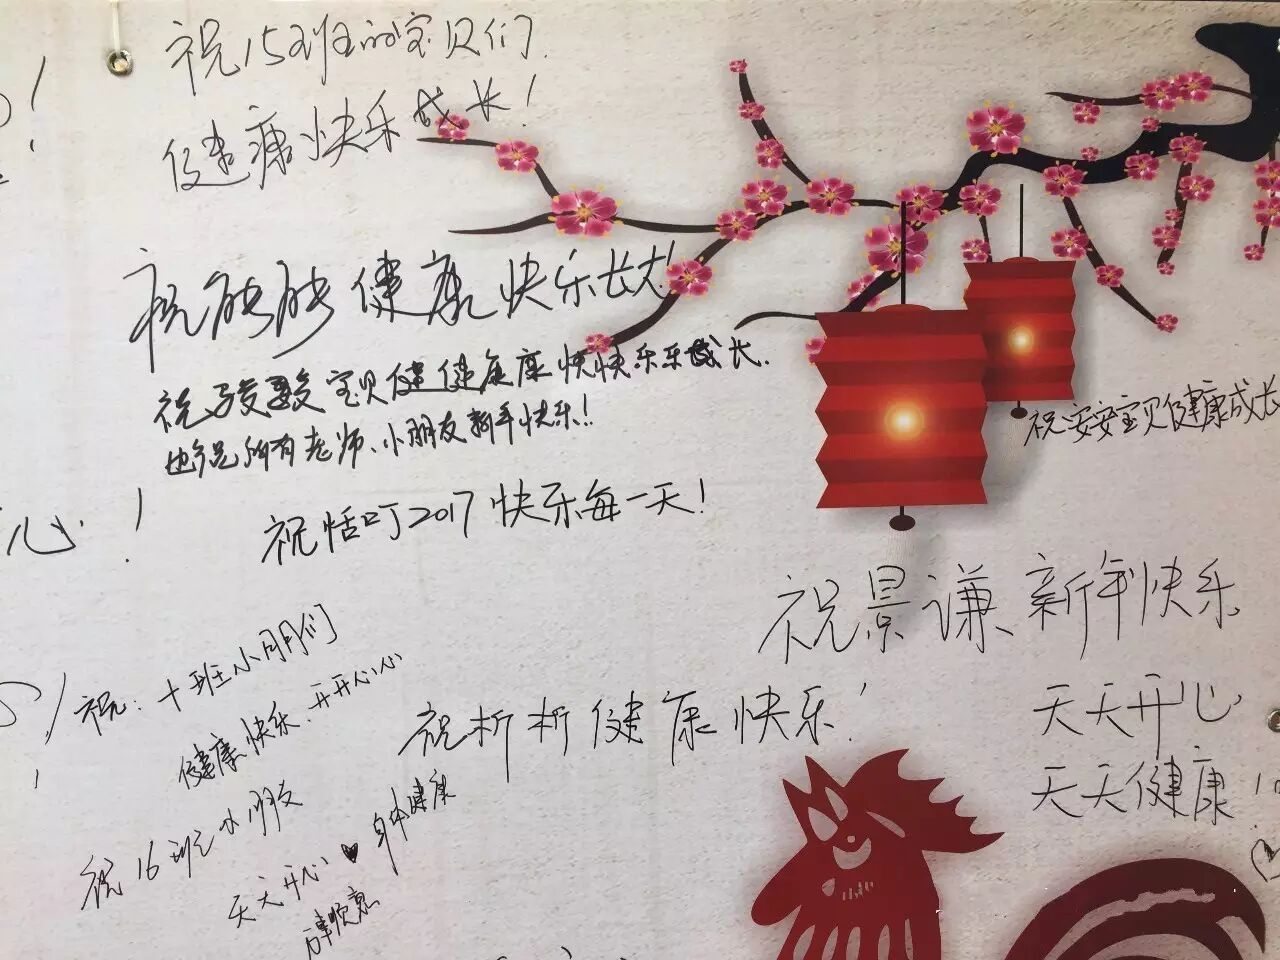 祝15班的宝贝们
健康快乐成长！
祝能能健康快乐长大！
祝 宝贝健健康康快快乐乐成长.
也祝所有老师、小朋友新年快乐!!
祝恬叮2017快乐每一天！
祝安安宝贝健康成长
心！
祝景谦新年快乐
天天开心
天天健康！
祝：十班小朋友们
健康快乐、开开心心
祝析析健康快乐！
祝16班小朋友
天天开心♥身体健康